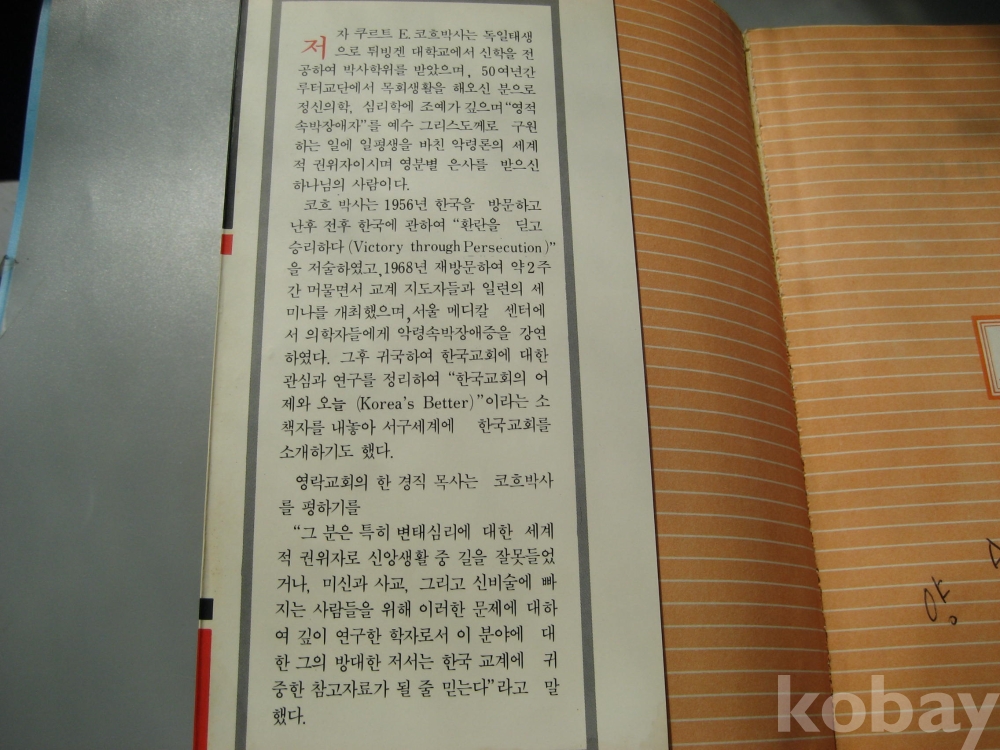 저자 쿠르트 E. 코흐박사는 독일태생
으로 튀빙겐 대학교에서 신학을 전
공하여 박사학위를 받았으며, 50여년간
루터교단에서 목회생활을 해오신 분으로
정신의학, 심리학에 조예가 깊으며 “영적
속박장애자”를 예수 그리스도께로 구원
하는 일에 일평생을 바친 악령론의 세계
적 권위자이시며 영분별 은사를 받으신
하나님의 사람이다.
코흐 박사는 1956년 한국을 방문하고
난후 전후 한국에 관하여 “환란을 딛고
승리하다 (Victory through Persecution)”
을 저술하였고, 1968년 재방문하여 약 2주
간 머물면서 교계 지도자들과 일련의 세
미나를 개최했으며, 서울 메디칼 센터에
서 의학자들에게 악령속박장애증을 강연
하였다. 그후 귀국하여 한국교회에 대한
관심과 연구를 정리하여 “한국교회의 어
제와 오늘 (Korea's Better)”이라는 소
책자를 내놓아 서구세계에 한국교회를
소개하기도 했다.
영락교회의 한 경직 목사는 코흐박사
를 평하기를
“그 분은 특히 변태심리에 대한 세계
적 권위자로 신앙생활 중 길을 잘못들었
거나, 미신과 사교, 그리고 신비술에 빠
지는 사람들을 위해 이러한 문제에 대하
여 깊이 연구한 학자로서 이 분야에 대
한 그의 방대한 저서는 한국 교계에 귀
중한 참고자료가 될 줄 믿는다”라고 말
했다.
양
kobay